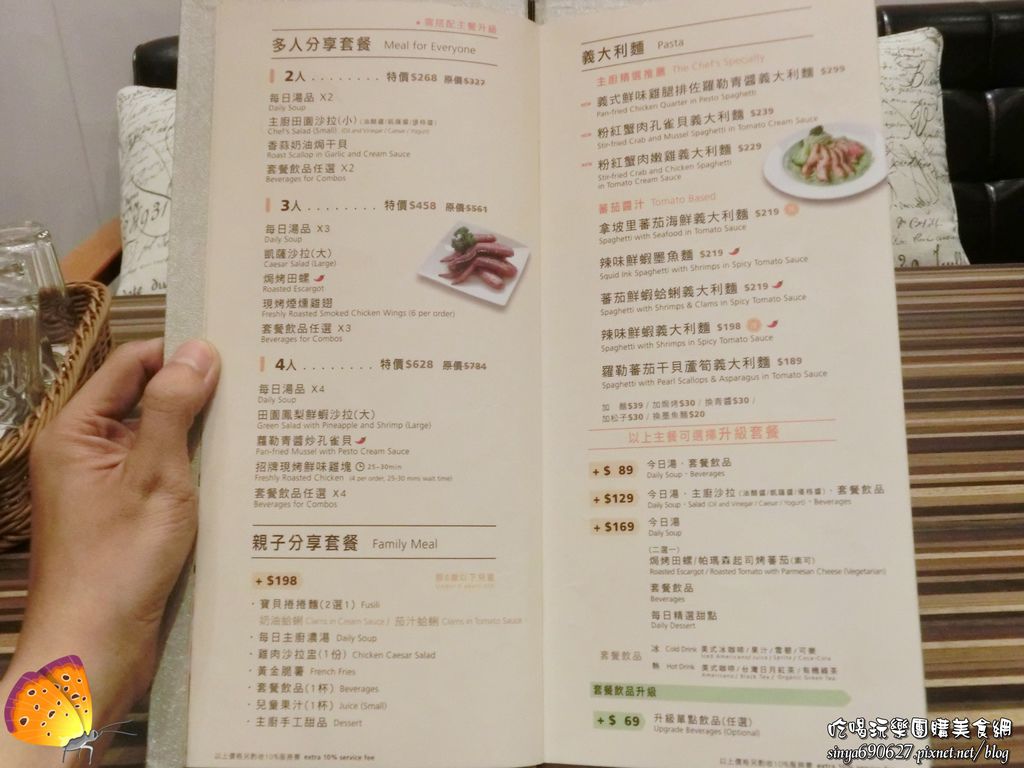 ★ 需搭配主餐升級
多人分享套餐 Meal for Everyone
2人 . . . . . . . . 特價$268 原價$327
每日湯品 X2
Daily Soup
主廚田園沙拉(小) (油醋醬/凱薩醬/優格醬)
Chef's Salad (Small) (Oil and Vinegar / Caesar / Yogurt)
香蒜奶油焗干貝
Roast Scallop in Garlic and Cream Sauce
套餐飲品任選 X2
Beverages for Combos
3人 . . . . . . . . 特價$458 原價$561
每日湯品 X3
Daily Soup
凱薩沙拉(大)
Caesar Salad (Large)
焗烤田螺
Roasted Escargot
現烤煙燻雞翅
Freshly Roasted Smoked Chicken Wings (6 per order)
套餐飲品任選 X3
Beverages for Combos
4人 . . . . . . . . 特價$628 原價$784
每日湯品 X4
Daily Soup
田園鳳梨鮮蝦沙拉(大)
Green Salad with Pineapple and Shrimp (Large)
蘿勒青醬炒孔雀貝
Pan-fried Mussel with Pesto Cream Sauce
招牌現烤鮮味雞塊 25~30min
Freshly Roasted Chicken (4 per order, 25-30 mins wait time)
套餐飲品任選 X4
Beverages for Combos
親子分享套餐 Family Meal
+ $198
・寶貝捲捲麵(2選1) Fusili
奶油蛤蜊 Clams in Cream Sauce / 茄汁蛤蜊 Clams in Tomato Sauce
・每日主廚濃湯 Daily Soup
・雞肉沙拉盅(1份) Chicken Caesar Salad
・黃金脆薯 French Fries
・套餐飲品(1杯) Beverages
・兒童果汁(1杯) Juice (Small)
・主廚手工甜品 Dessert
以上價格另酌收10%服務費 extra 10% service fee
義大利麵 Pasta
主廚精選推薦 The Chef's Specialty
義式鮮味雞腿排佐羅勒青醬義大利麵 $299
Pan-fried Chicken Quarter in Pesto Spaghetti
粉紅蟹肉孔雀貝義大利麵 $239
Stir-fried Crab and Mussel Spaghetti in Tomato Cream Sauce
粉紅蟹肉嫩雞義大利麵 $229
Stir-fried Crab and Chicken Spaghetti
in Tomato Cream Sauce
蕃茄醬汁 Tomato Based
拿坡里蕃茄海鮮義大利麵 $219
Spaghetti with Seafood in Tomato Sauce
辣味鮮蝦墨魚麵 $219
Squid Ink Spaghetti with Shrimps in Spicy Tomato Sauce
蕃茄鮮蝦蛤蜊義大利麵 $219
Spaghetti with Shrimps & Clams in Spicy Tomato Sauce
辣味鮮蝦義大利麵 $198
Spaghetti with Shrimps in Spicy Tomato Sauce
羅勒蕃茄干貝蘆筍義大利麵 $189
Spaghetti with Pearl Scallops & Asparagus in Tomato Sauce
加 麵$39 / 加焗烤$30 / 換青醬$30 /
加松子$30 / 換墨魚麵$20
以上主餐可選擇升級套餐
+ $ 89 今日湯・套餐飲品
Daily Soup・Beverages
+ $129 今日湯・主廚沙拉 (油醋醬/凱薩醬/優格醬)・套餐飲品
Daily Soup・Salad (Oil and Vinegar / Caesar / Yogurt)・Beverages
+ $169 今日湯
Daily Soup
(二選一)
焗烤田螺/帕瑪森起司烤蕃茄(素可)
Roasted Escargot / Roasted Tomato with Parmesan Cheese (Vegetarian)
套餐飲品
Beverages
每日精選甜點
Daily Dessert
套餐飲品 冰 Cold Drink 美式冰咖啡/果汁/雪碧/可樂
Iced Americano/ Juice / Sprite / Coca-Cola
熱 Hot Drink 美式咖啡/台灣日月紅茶/有機綠茶
Americano/ Black Tea / Organic Green Tea
套餐飲品升級
+ $ 69 升級單點飲品(任選)
Upgrade Beverages (Optional)
以上價格另酌收10%服務費
吃喝玩樂團購美食網
sinya690627.pixnet.net/blog